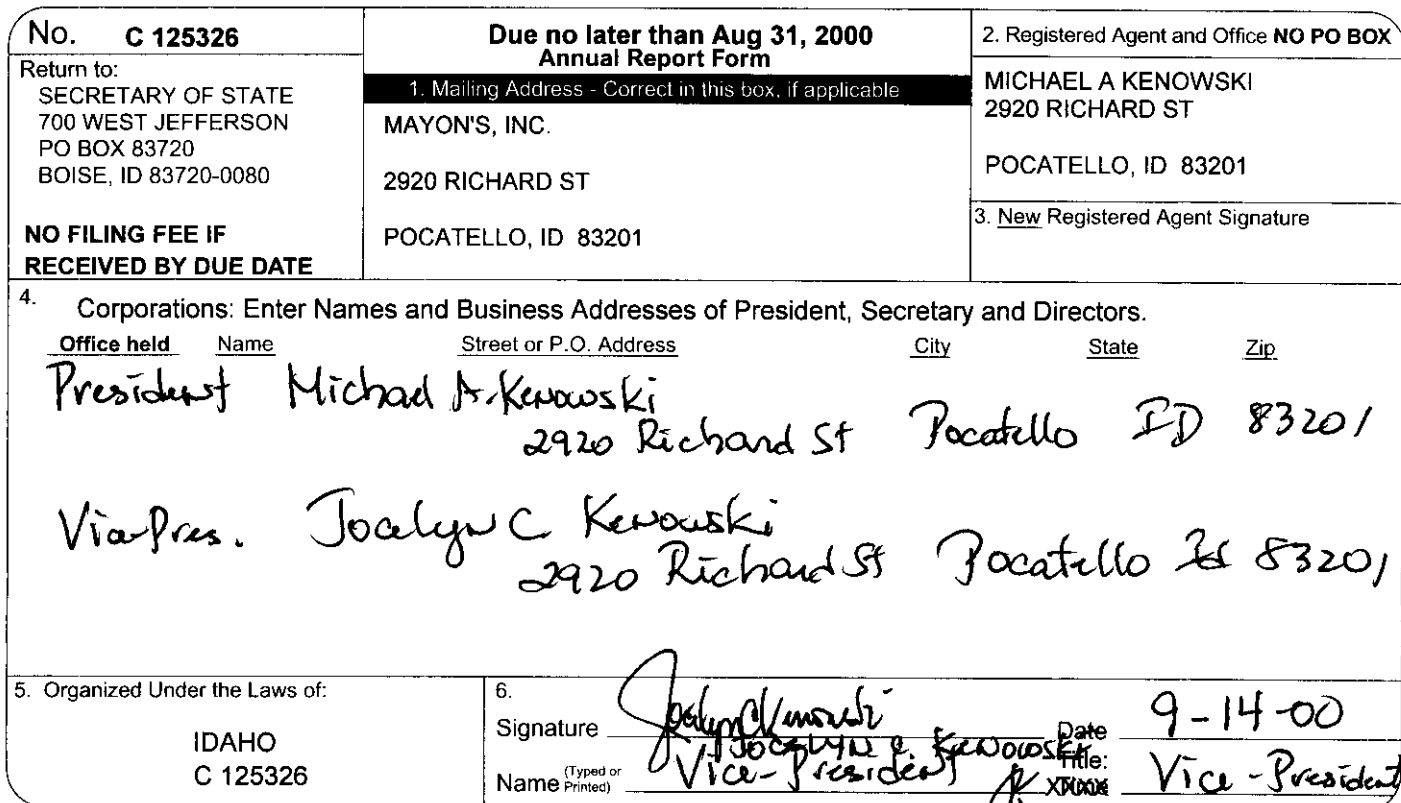 No. C 125326
Return to:
SECRETARY OF STATE
700 WEST JEFFERSON
PO BOX 83720
BOISE, ID 83720-0080
NO FILING FEE IF
RECEIVED BY DUE DATE
Due no later than Aug 31, 2000
Annual Report Form
1. Mailing Address - Correct in this box, if applicable
MAYON'S, INC.
2920 RICHARD ST
POCATELLO, ID 83201
2. Registered Agent and Office NO PO BOX
MICHAEL A KENOWSKI
2920 RICHARD ST
POCATELLO, ID 83201
3. New Registered Agent Signature
4. Corporations: Enter Names and Business Addresses of President, Secretary and Directors.
Office held Name Street or P.O. Address City State Zip
President Michael A. Kenowski
2920 Richard St Pocatello ID 83201
Vice-Pres. Jocelyn C Kenowski
2920 Richard St Pocatello Id 83201
5. Organized Under the Laws of:
IDAHO
C 125326
6.
Signature Jocelyn C Kenowski Date 9-14-00
JOCELYN C. KENOWSKI
Name (Typed or Printed) Vice-President Title: Vice-President